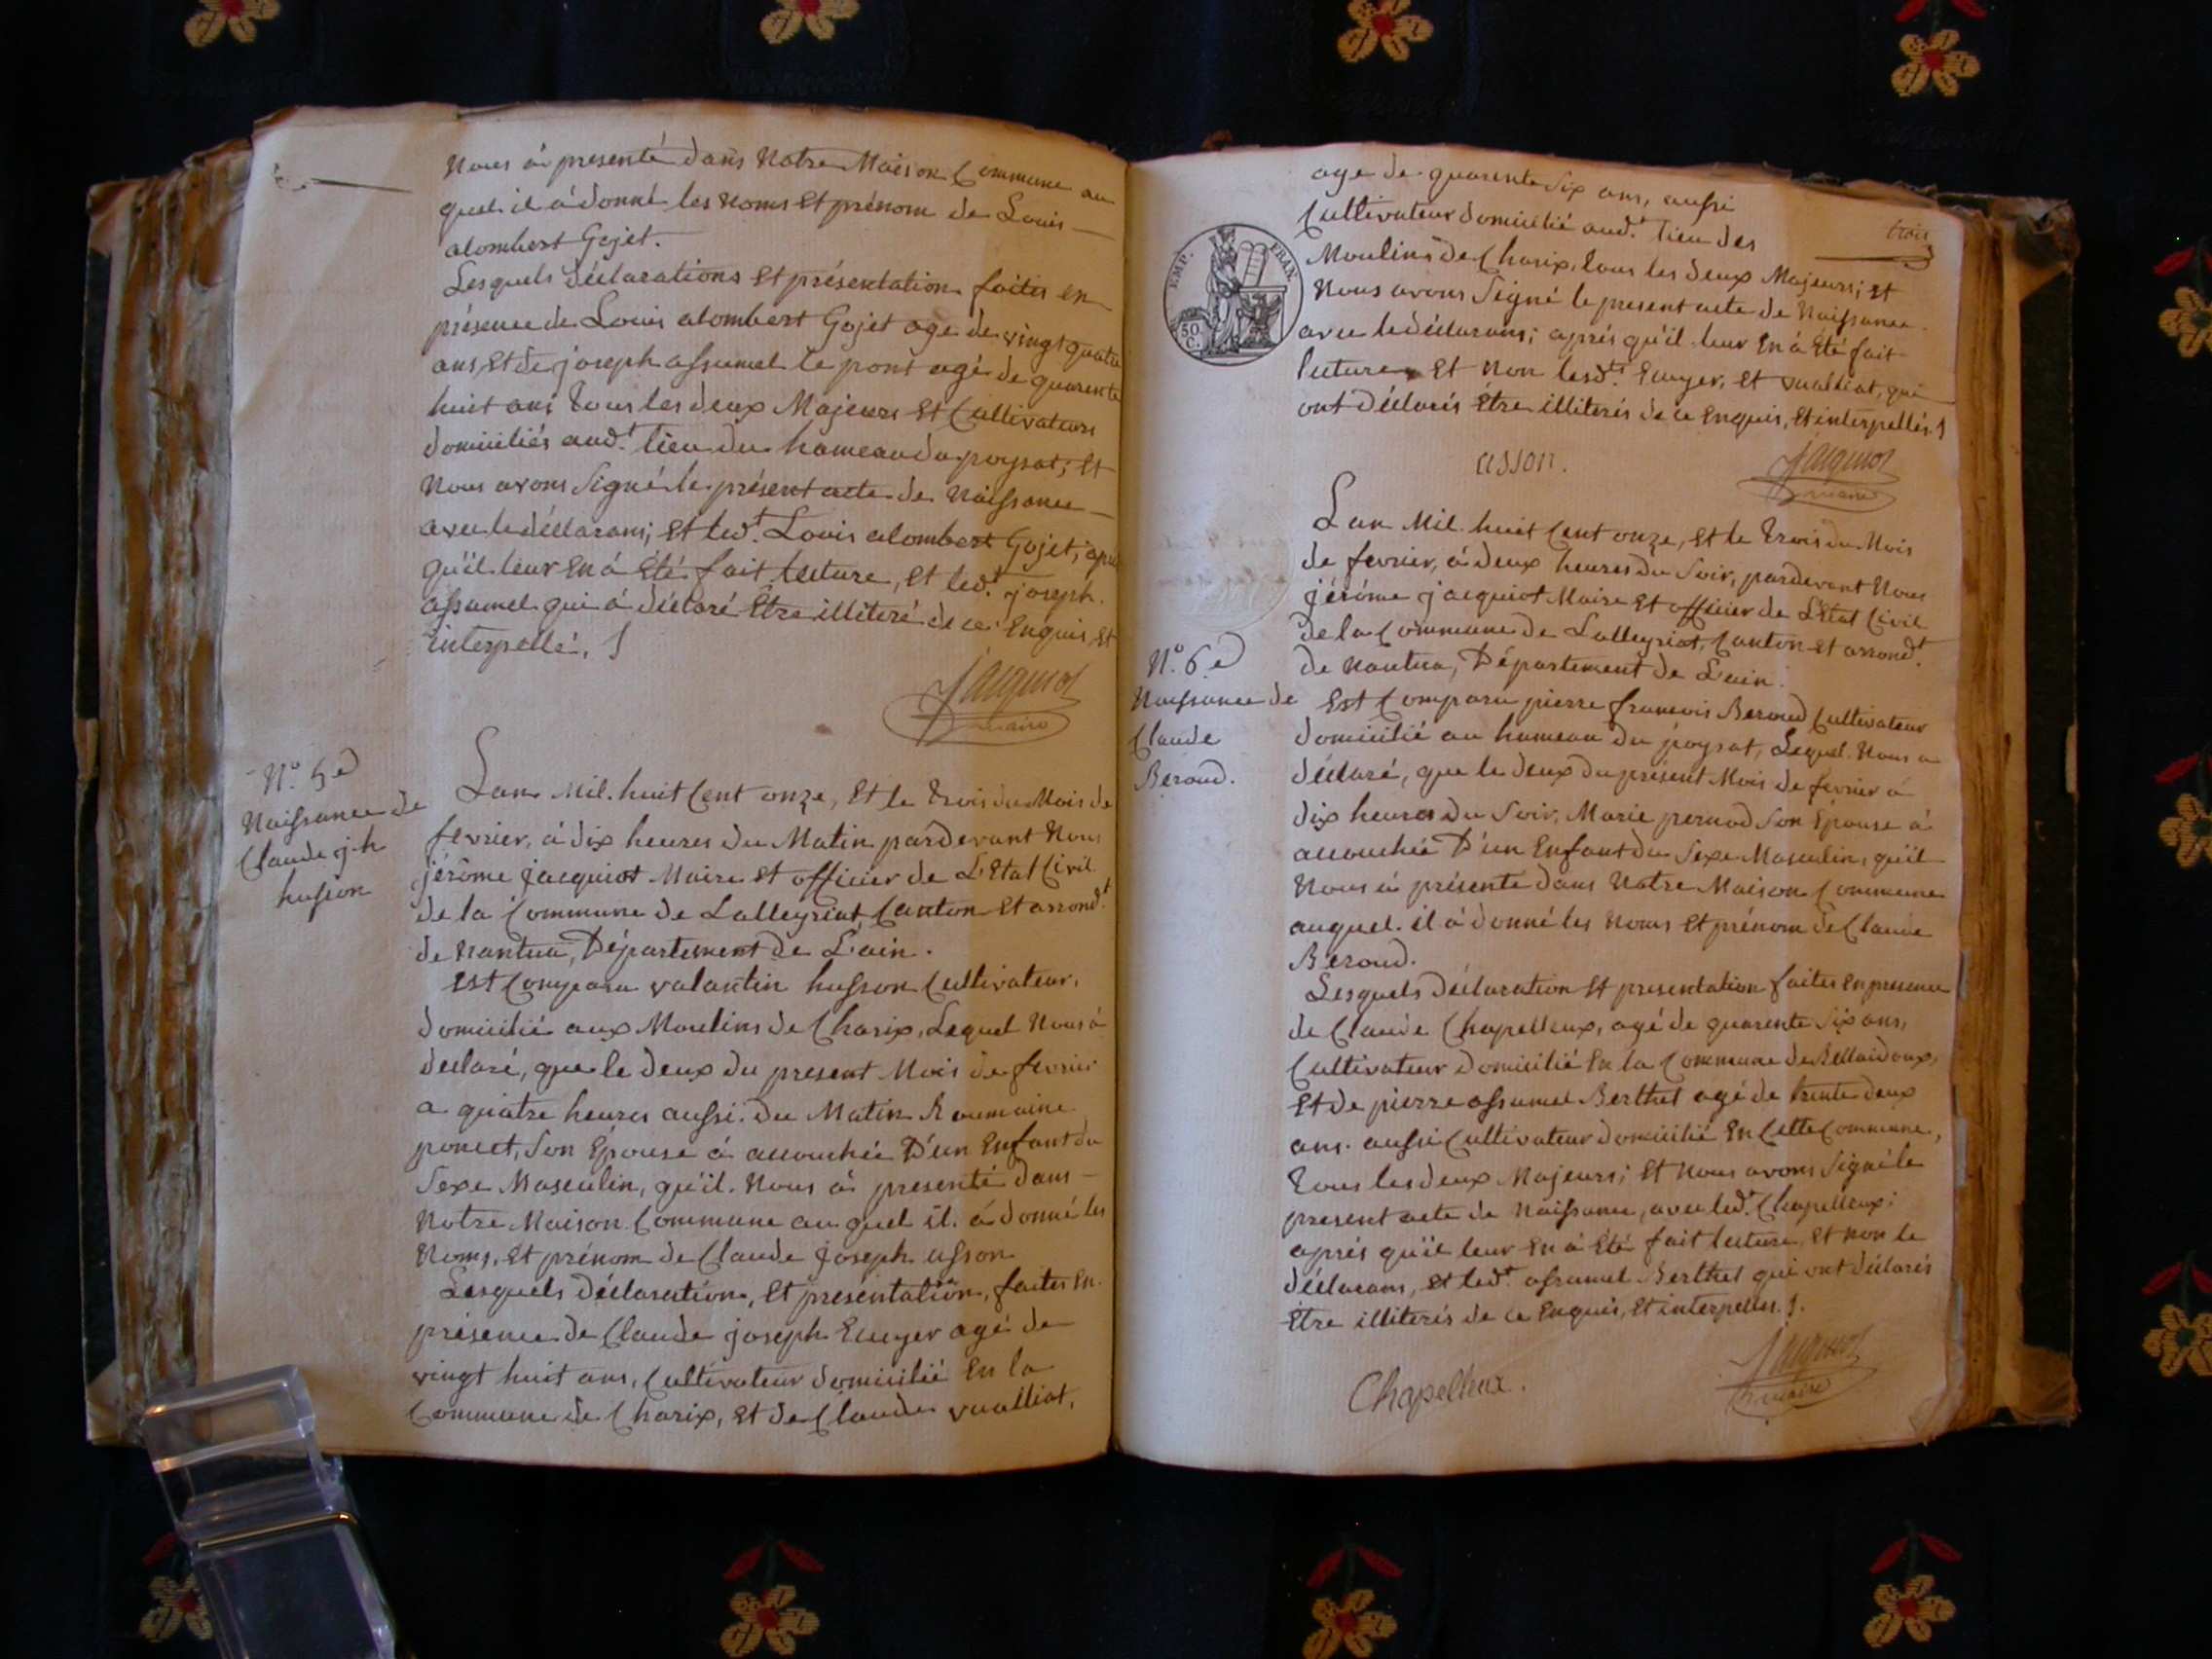 Nous à présenté dans Notre Maison Commune au
quel il à donné les Noms Et prénom de Louis
alombert Gojet.
Lesquels déclarations Et présentation faites en
présence de Louis alombert Gojet age de vingt quatre
ans, Et de joseph assumel le pont agé de quarente
huit ans tous les deux Majeurs Et Cultivateurs
domiciliés aud.t lieu du hameau du poysat; Et
Nous avons Signé le présent acte de Naissance
avec le déclarans; Et led.t Louis alombert Gojet; aprés
qu'il leur En à Eté fait lecture, Et led.t joseph
assumel qui à déclaré Etre illiteré de ce Enquis, Et
interpellé.
Jacquiot
maire
N.o 5e
Naissance de
Claude j.h
husson
Lan Mil. huit Cent onze, Et le trois du Mois de
fevrier, à dix heures du Matin pardevant Nous
jérôme jacquiot Maire Et officier de L'Etat Civil
de la Commune de Lalleyriat Canton Et arrond.t
de Nantua, Département de L'ain.
Est Comparu valantin husson Cultivateur,
domicilié aux Moulins de Charix, Lequel Nous à
declaré, que le deux du present Mois de fevrier
a quatre heures aussi du Matin Roumaine
poncet, Son Epouse à accouchée D'un Enfant du
Sexe Masculin, qu'il Nous à presenté dans
Notre Maison Commune au quel il à donné les
Noms, Et prénom de Claude Joseph usson
Lesquels Déclaration, Et présentation, faites En
présence de Claude joseph Ecuyer agé de
vingt huit ans, Cultivateur domicilié En la
Commune de Charix, Et de Claude vualliat,
trois
age de quarente Six ans, aussi
Cultivateur domicilié aud.t lieu des
EMP. FRAN.
50 C.
Moulins de Charix, tous les deux Majeurs; Et
Nous avons Signé le present acte de Naissance
avec le déclarans; aprés qu'il leur En à Eté fait
lecture Et Non lesd.ts Ecuyer, Et vualliat, qui
ont Déclarés Etre illiterés de ce Enquis, Et interpellés.
asson.
Jacquiot
maire
Lan Mil huit Cent onze, Et le trois du Mois
de fevrier, à deux heures du Soir, pardevant Nous
jérôme jacquiot Maire Et officier de L'Etat Civil
de la Commune de Lalleyriat, Canton Et arrond.t
de Nantua, Département de L'ain.
N.o 6e
Naissance de
Claude
Beroud.
Est Comparu pierre francois Beroud Cultivateur
domicilié au hameau du poysat, Lequel Nous a
déclaré, que le deux du présent Mois de fevrier à
dix heures du Soir, Marie pernod Son Epouse à
accouchée D'un Enfant du Sexe Masculin, qu'il
Nous à présenté dans Notre Maison Commune
auquel il à donné les Noms Et prénom de Claude
Beroud.
Lesquels Déclaration Et presentation faites En presence
de Claude Chapelleux, agé de quarente Six ans,
Cultivateur domicilié En la Commune de Bellaidoux,
Et de pierre assumel Berthet agé de trente deux
ans. aussi Cultivateur domicilié En Cette Commune,
tous les deux Majeurs; Et Nous avons Signé le
present acte de Naissance, avec led.t Chapelleux;
aprés qu'il leur En à Eté fait lecture, Et Non le
déclarans, Et led.t assumel Berthet qui ont déclarés
Etre illiterés de ce Enquis, Et interpellés.
Chapelleux.
Jacquiot
maire